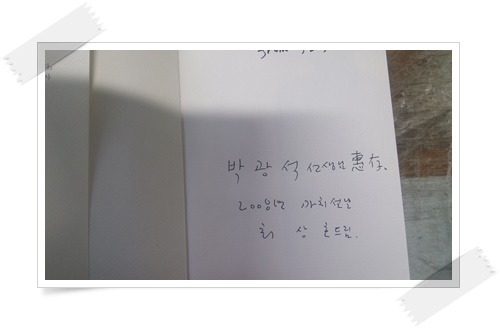 박 광 석 선생님 惠存.
2008년 까치설날
최 상 호 드림.